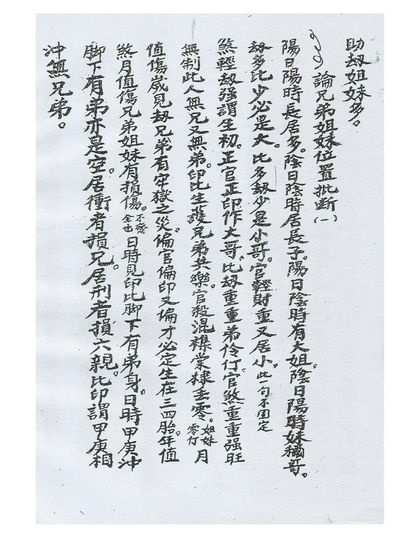 助劫姐妹多。
論兄弟姐妹位置批断(一)
陽日陽時長居多。陰日陰時居長子。陽日陰時有大姐。陰日陽時妹稱哥。
劫多比少必是大。比多劫少是小哥。官輕財重又居小。此一句不固定
煞輕劫強謂生初。正官正印作大哥。比劫重重弟伶仃。官煞重重強旺
無制此人無兄又無弟。印比生護兄弟共樂。官殺混襍棠棣丟零。姐妹零仃 月
值傷歲見劫兄弟有牢獄之災。偏官偏印又偏才必定生在三四胎年值
煞月值傷兄弟姐妹有損傷。不喪全也 日時見印比脚下有弟身。日時甲庚沖
脚下有弟亦是空。居衝者損兄。居刑者損六親。比印謂甲庚相
沖無兄弟。